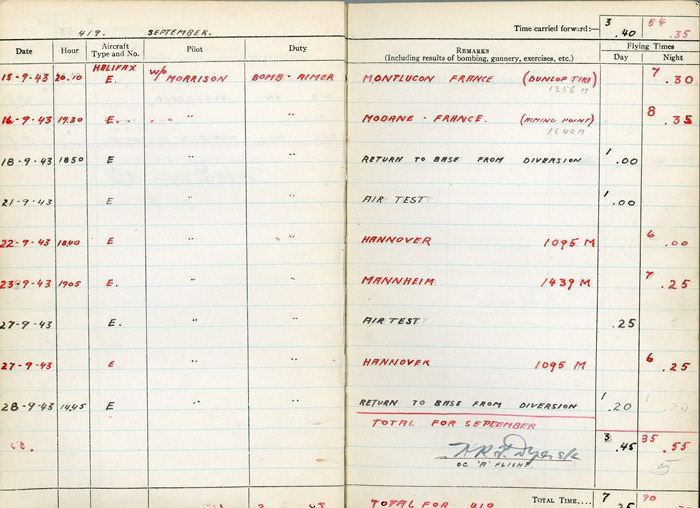 419. SEPTEMBER. Time carried forward:— 3 .40 54 .35
Date Hour Aircraft Type and No. Pilot Duty REMARKS (Including results of bombing, gunnery, exercises, etc.) Flying Times Day Night
15-9-43 20.10 HALIFAX E. W/O MORRISON BOMB-AIMER MONTLUCON FRANCE (DUNLOP TIRE) 1256 M 7 .30
16-9-43 19.30 E. " " MODANE - FRANCE. (AIMING POINT) 1640 M 8 .35
18-9-43 1850 E " " RETURN TO BASE FROM DIVERSION 1 .00
21-9-43 E " " AIR TEST 1 .00
22-9-43 E " " HANNOVER 1095 M 6 .00
23-9-43 1905 E. " " MANNHEIM 1439 M 7 .25
27-9-43 E. " " AIR TEST .25
27-9-43 E " " HANNOVER 1095 M 6 .25
28-9-43 1445 E " " RETURN TO BASE FROM DIVERSION 1 .20
TOTAL FOR SEPTEMBER 3 .45 35 .55
OC 'A' FLIGHT 5
TOTAL FOR 419 TOTAL TIME.... 7 90